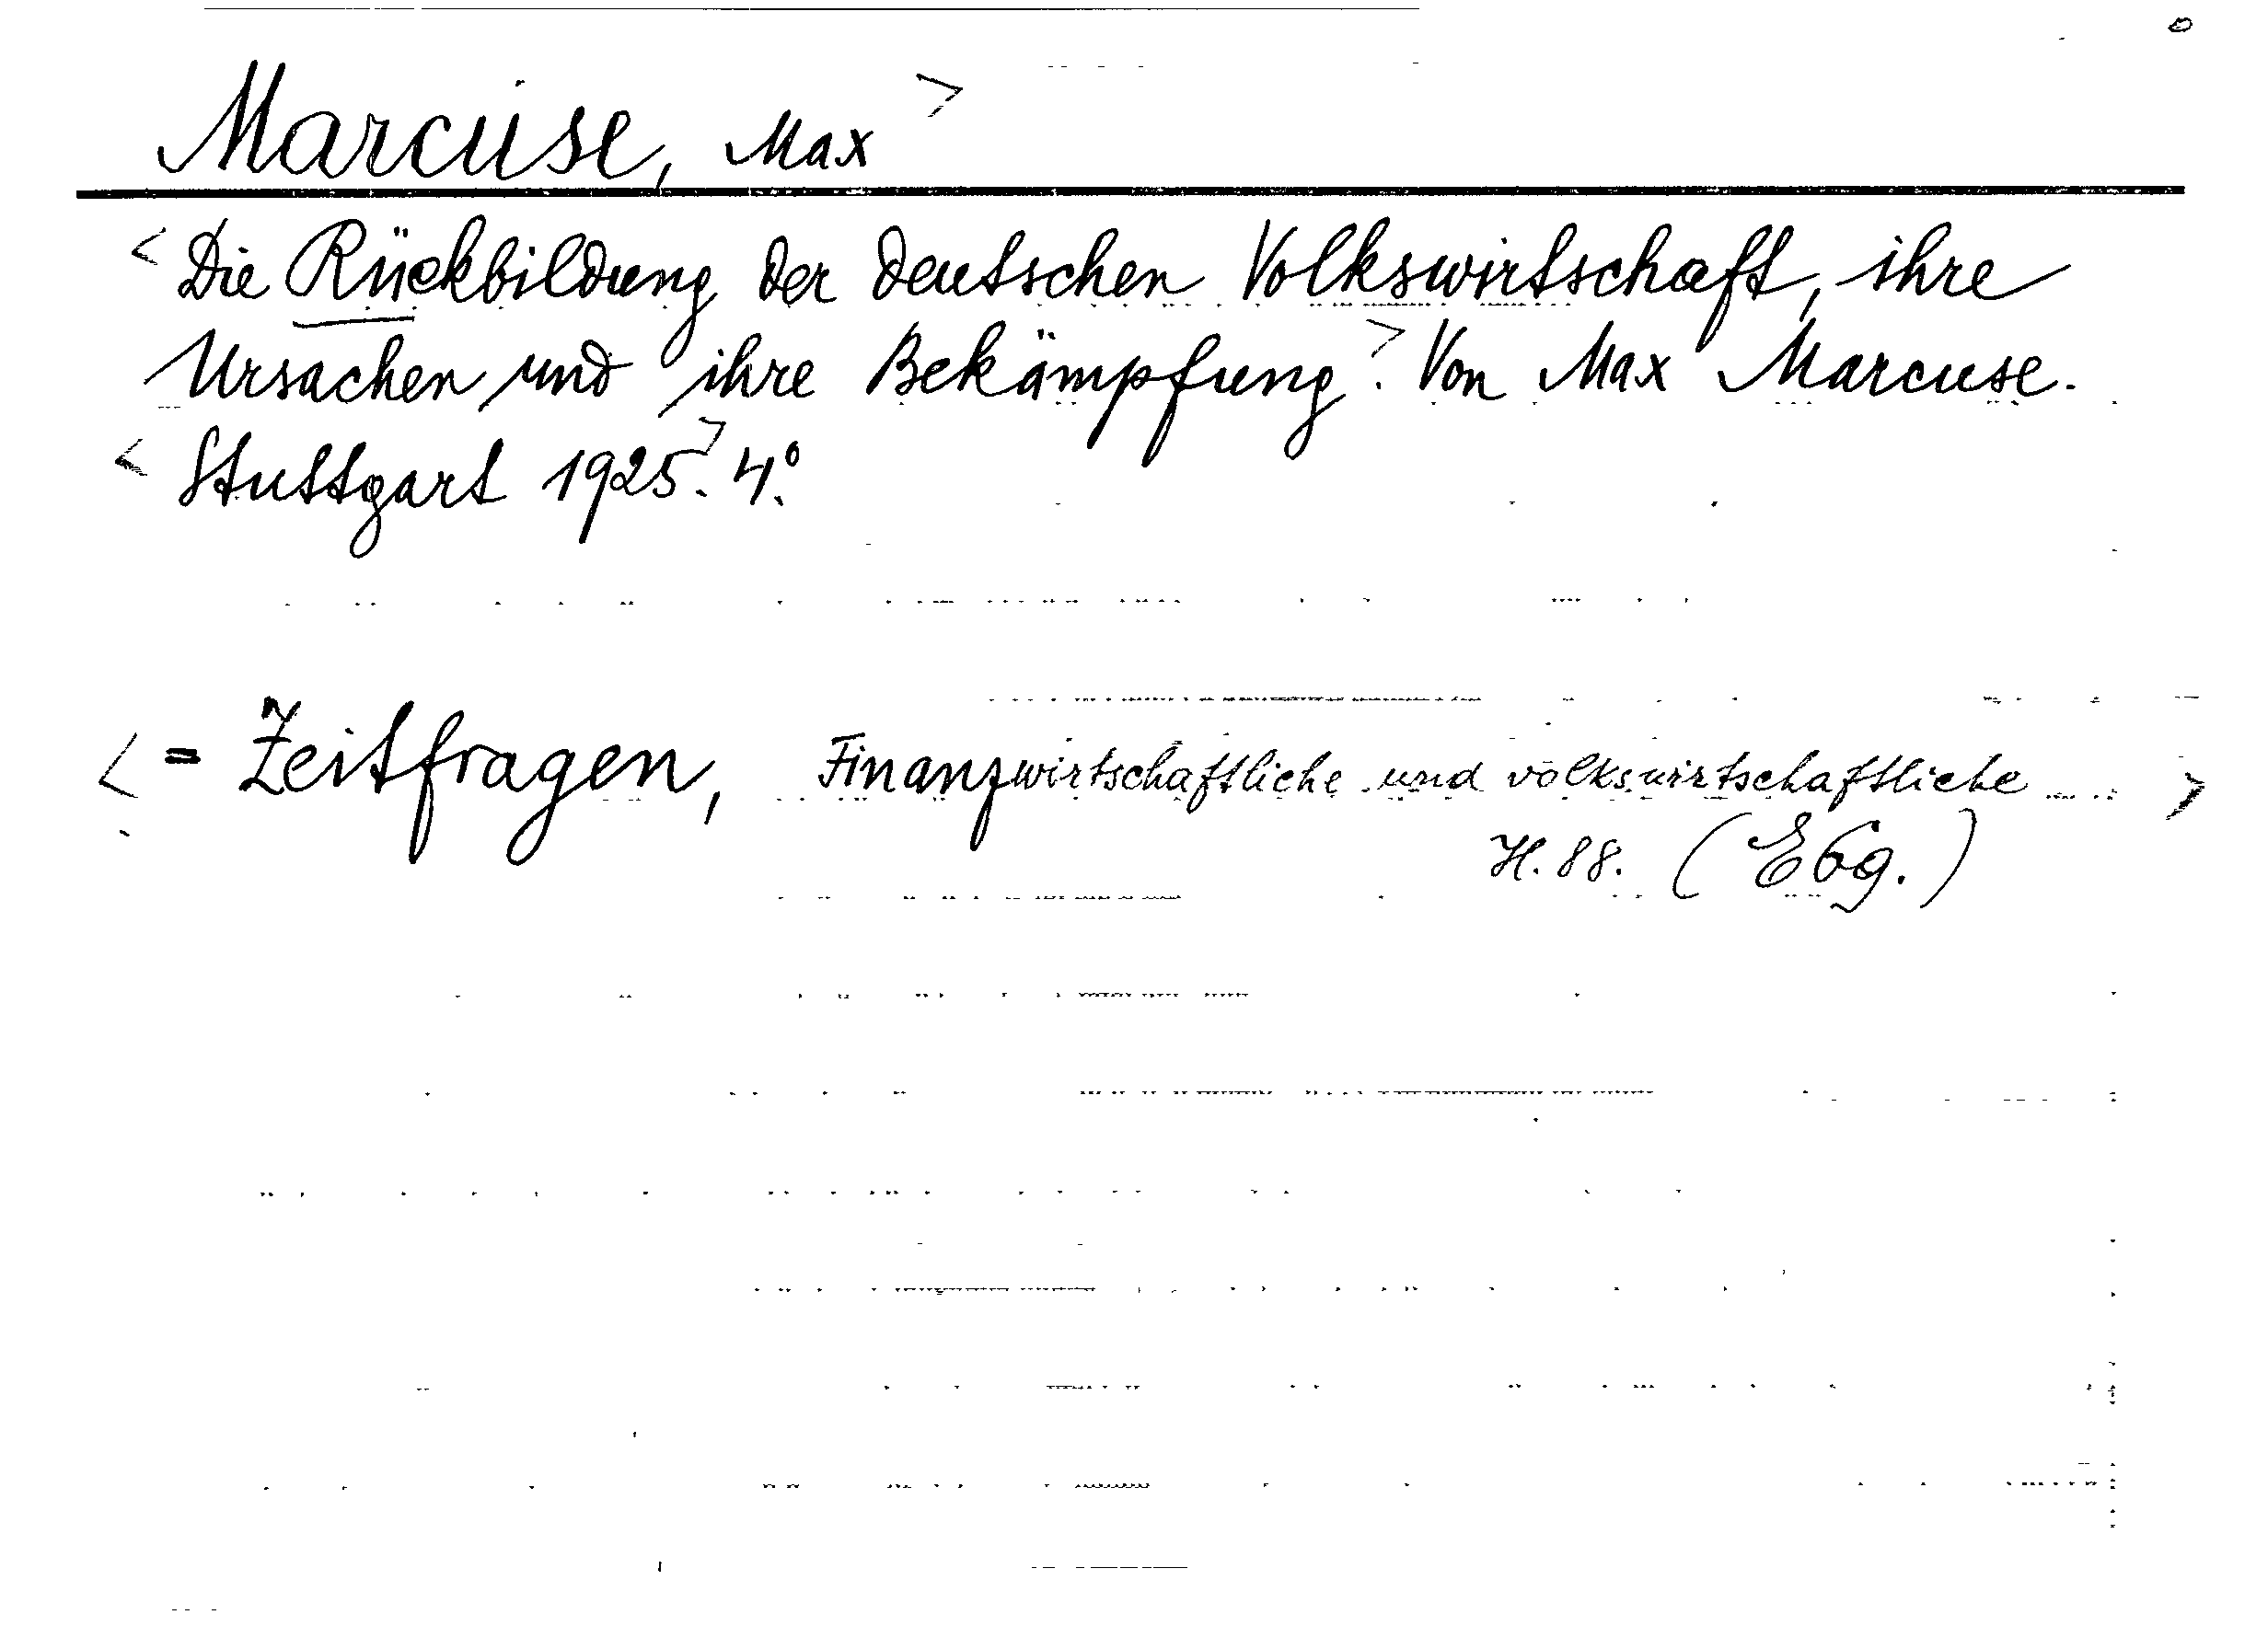 Marcuse, Max >
< Die Rückbildung der deutschen Volkswirtschaft, ihre
Ursachen und ihre Bekämpfung >. Von Max Marcuse.
< Stuttgart 1925 >. 4°.
< = Zeitfragen, Finanzwirtschaftliche und volkswirtschaftliche >
H. 88. (Ebg.)